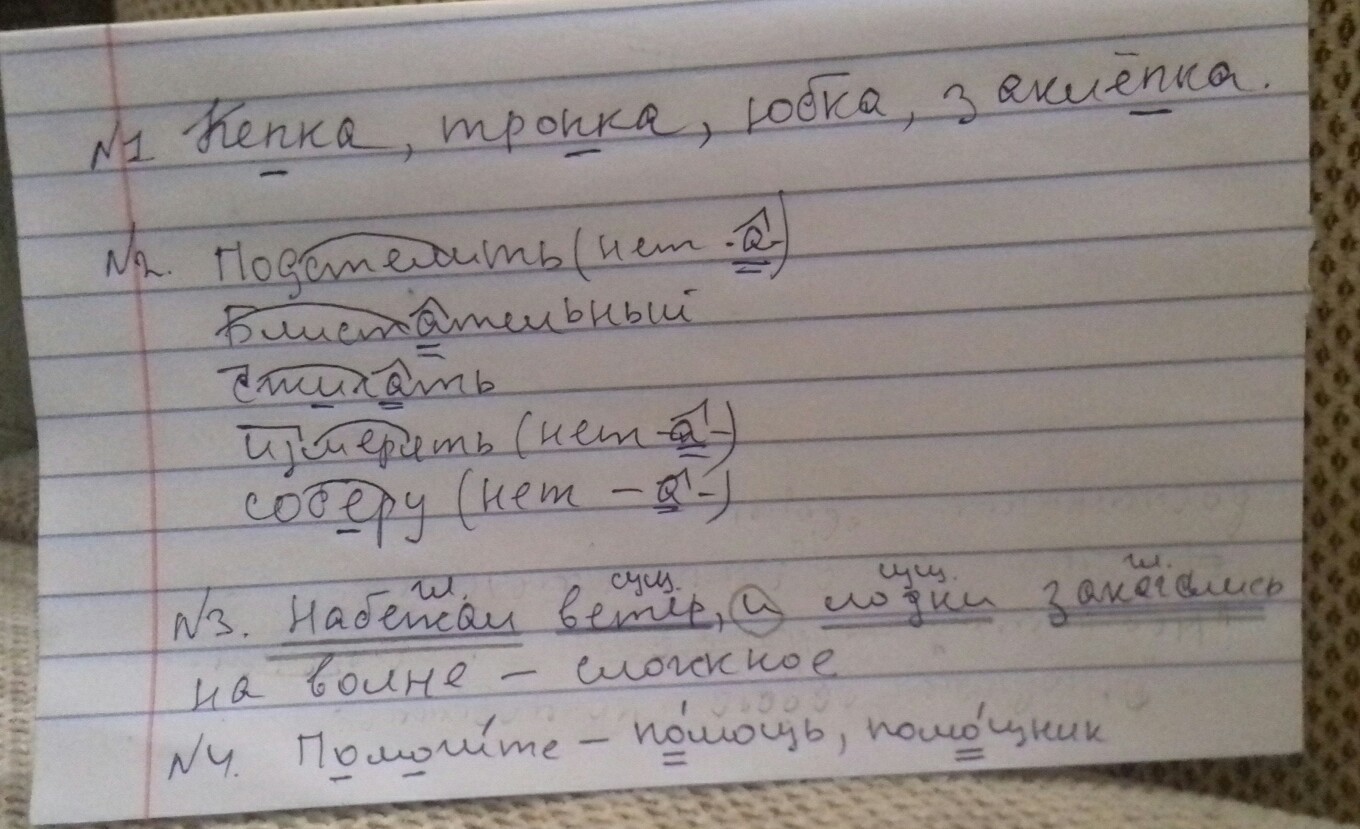 №1 Кепка, тропка, юбка, заклёпка.
№2. Подстелить (нет -а-)
Блистательный
стихать
измерять (нет -а-)
соберу (нет -а-)
гл. сущ. сущ. гл.
№3. Набежал ветер, и лодки закачались
на волне - сложное
№4. Помоги́те - по́мощь, помо́щник